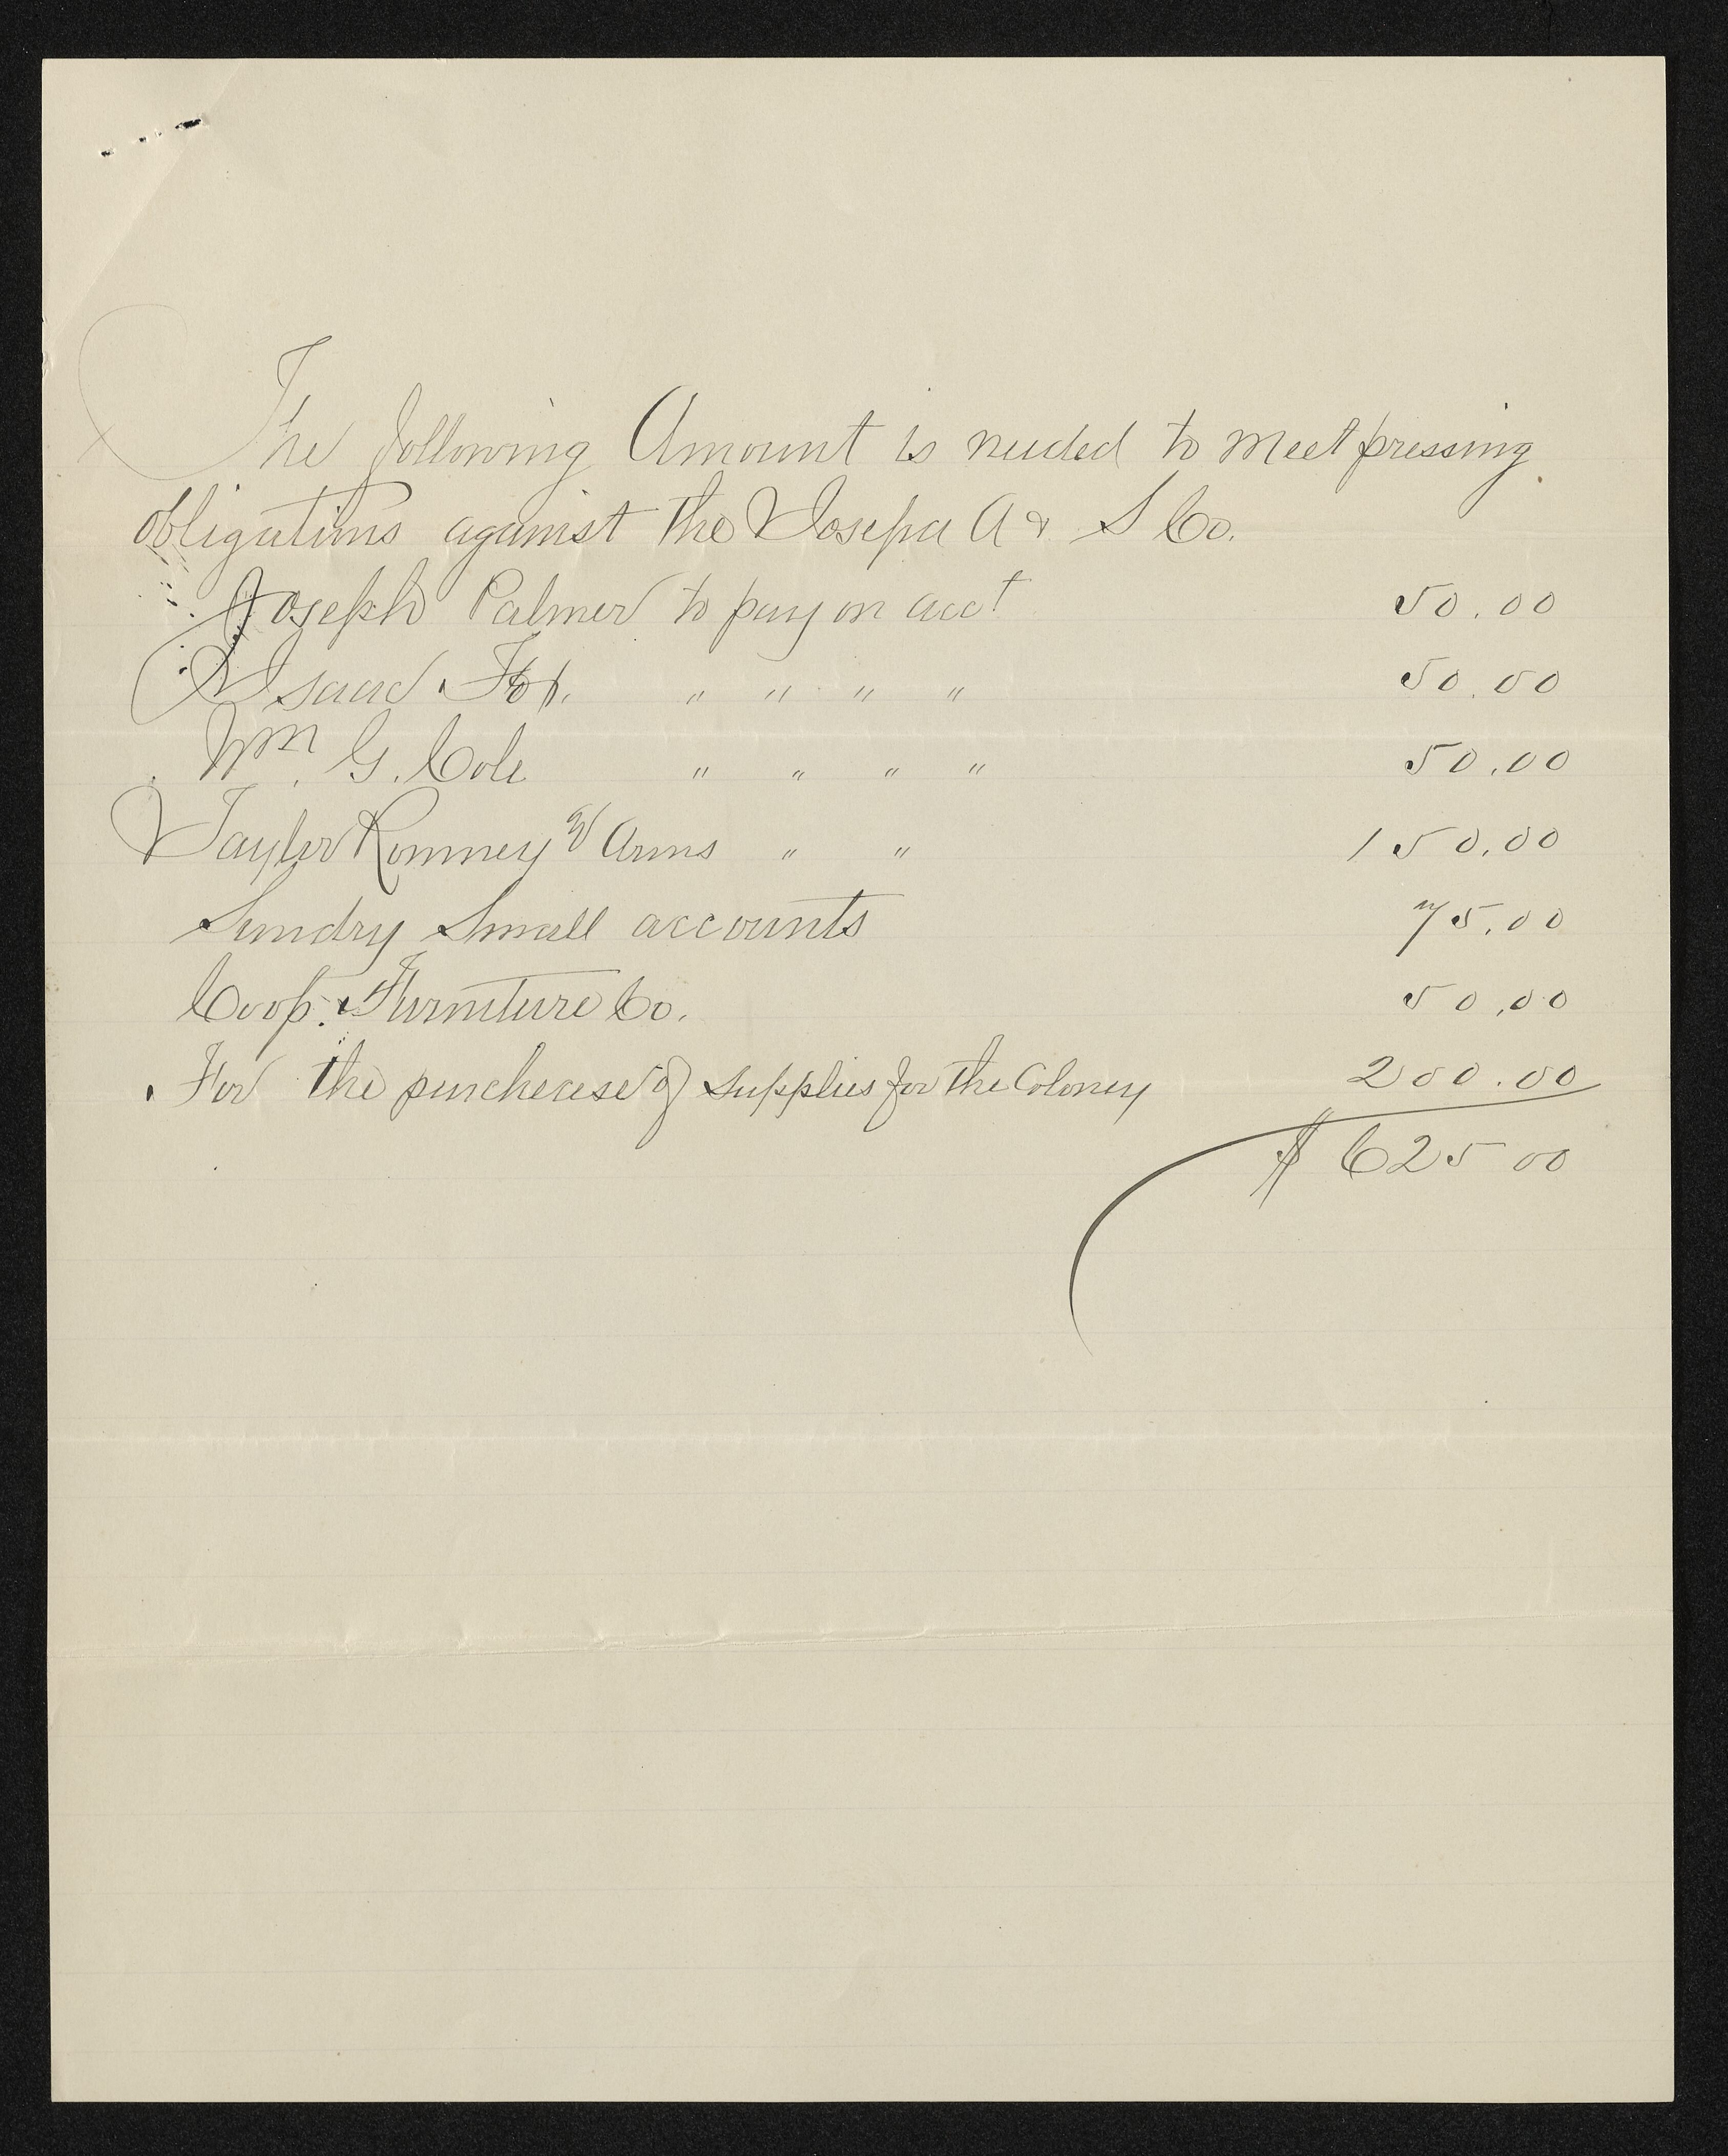 The following Amount is needed to meet pressing
obligations against the Iosepa A & S Co.
Joseph Palmer to pay on acct 50.00
Isaac Fox. " " " " 50.00
Wm. G. Cole " " " " 50.00
Taylor Romney & Arms " " 150.00
Sundry Small accounts 75.00
Coop. Furniture Co. 50.00
For the purchease of supplies for the Coloney 200.00
$ 625 00